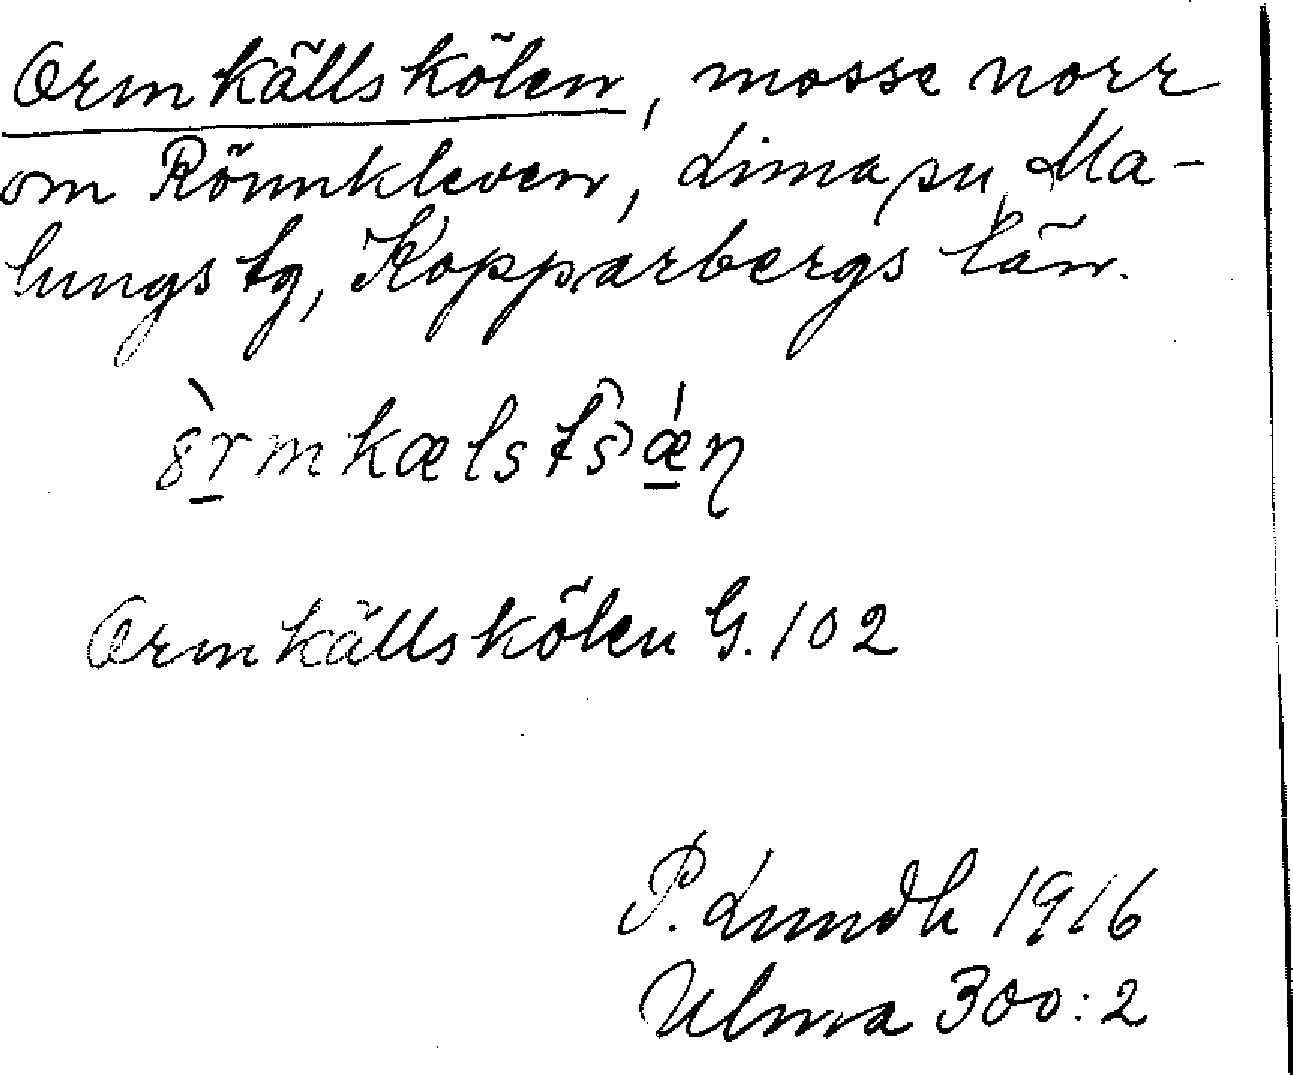 Ormkällskölen, mosse norr
om Rönnkleven, Lima sn, Ma-
lungs tg, Kopparbergs län.
Ormkällskölen G. 102
P. Lundh 1916
Ulma 300:2